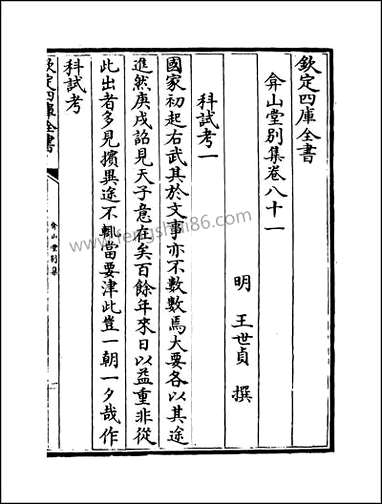 欽定四庫全書
弇山堂別集卷八十一
明 王世貞 撰
科試考一
國家初起右武其於文事亦不數數焉大要各以其途
進然庚戌詔見天子意在矣百餘年來日以益重非從
此出者多見擯異途不輒當要津此豈一朝一夕哉作
科試考
欽定四庫全書
弇山堂別集
一
www.fengshui86.com